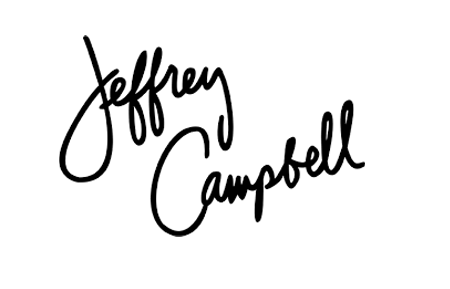 Jeffrey
Campbell